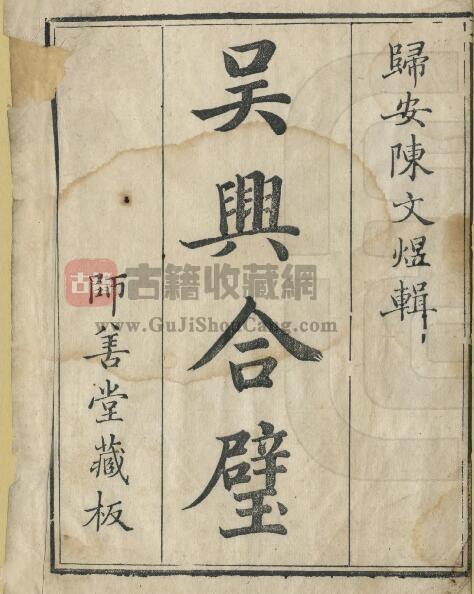 歸安陳文煜輯
吳興合璧
師善堂藏板
古籍
古籍收藏網
www.GuJiShouCang.com